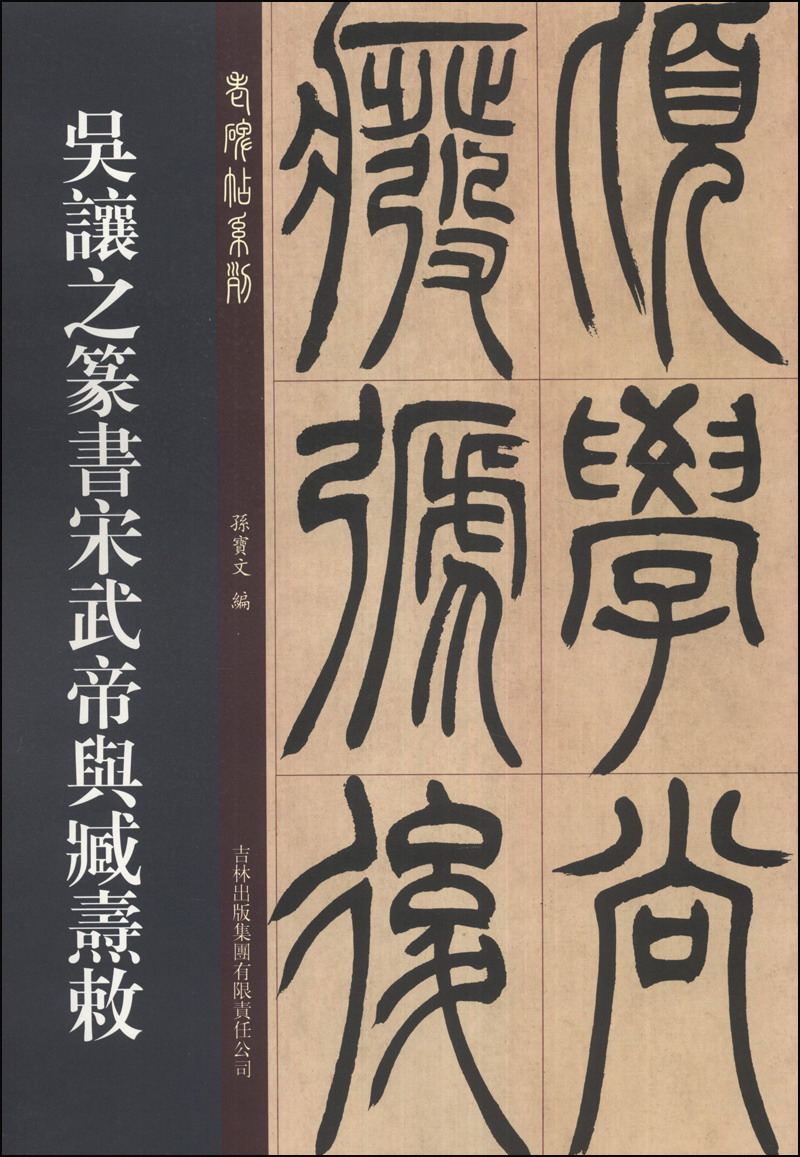 頃學尚
癈㢮後
老碑帖系列
孫寶文 編
吉林出版集團有限責任公司
吳讓之篆書宋武帝與臧燾敕